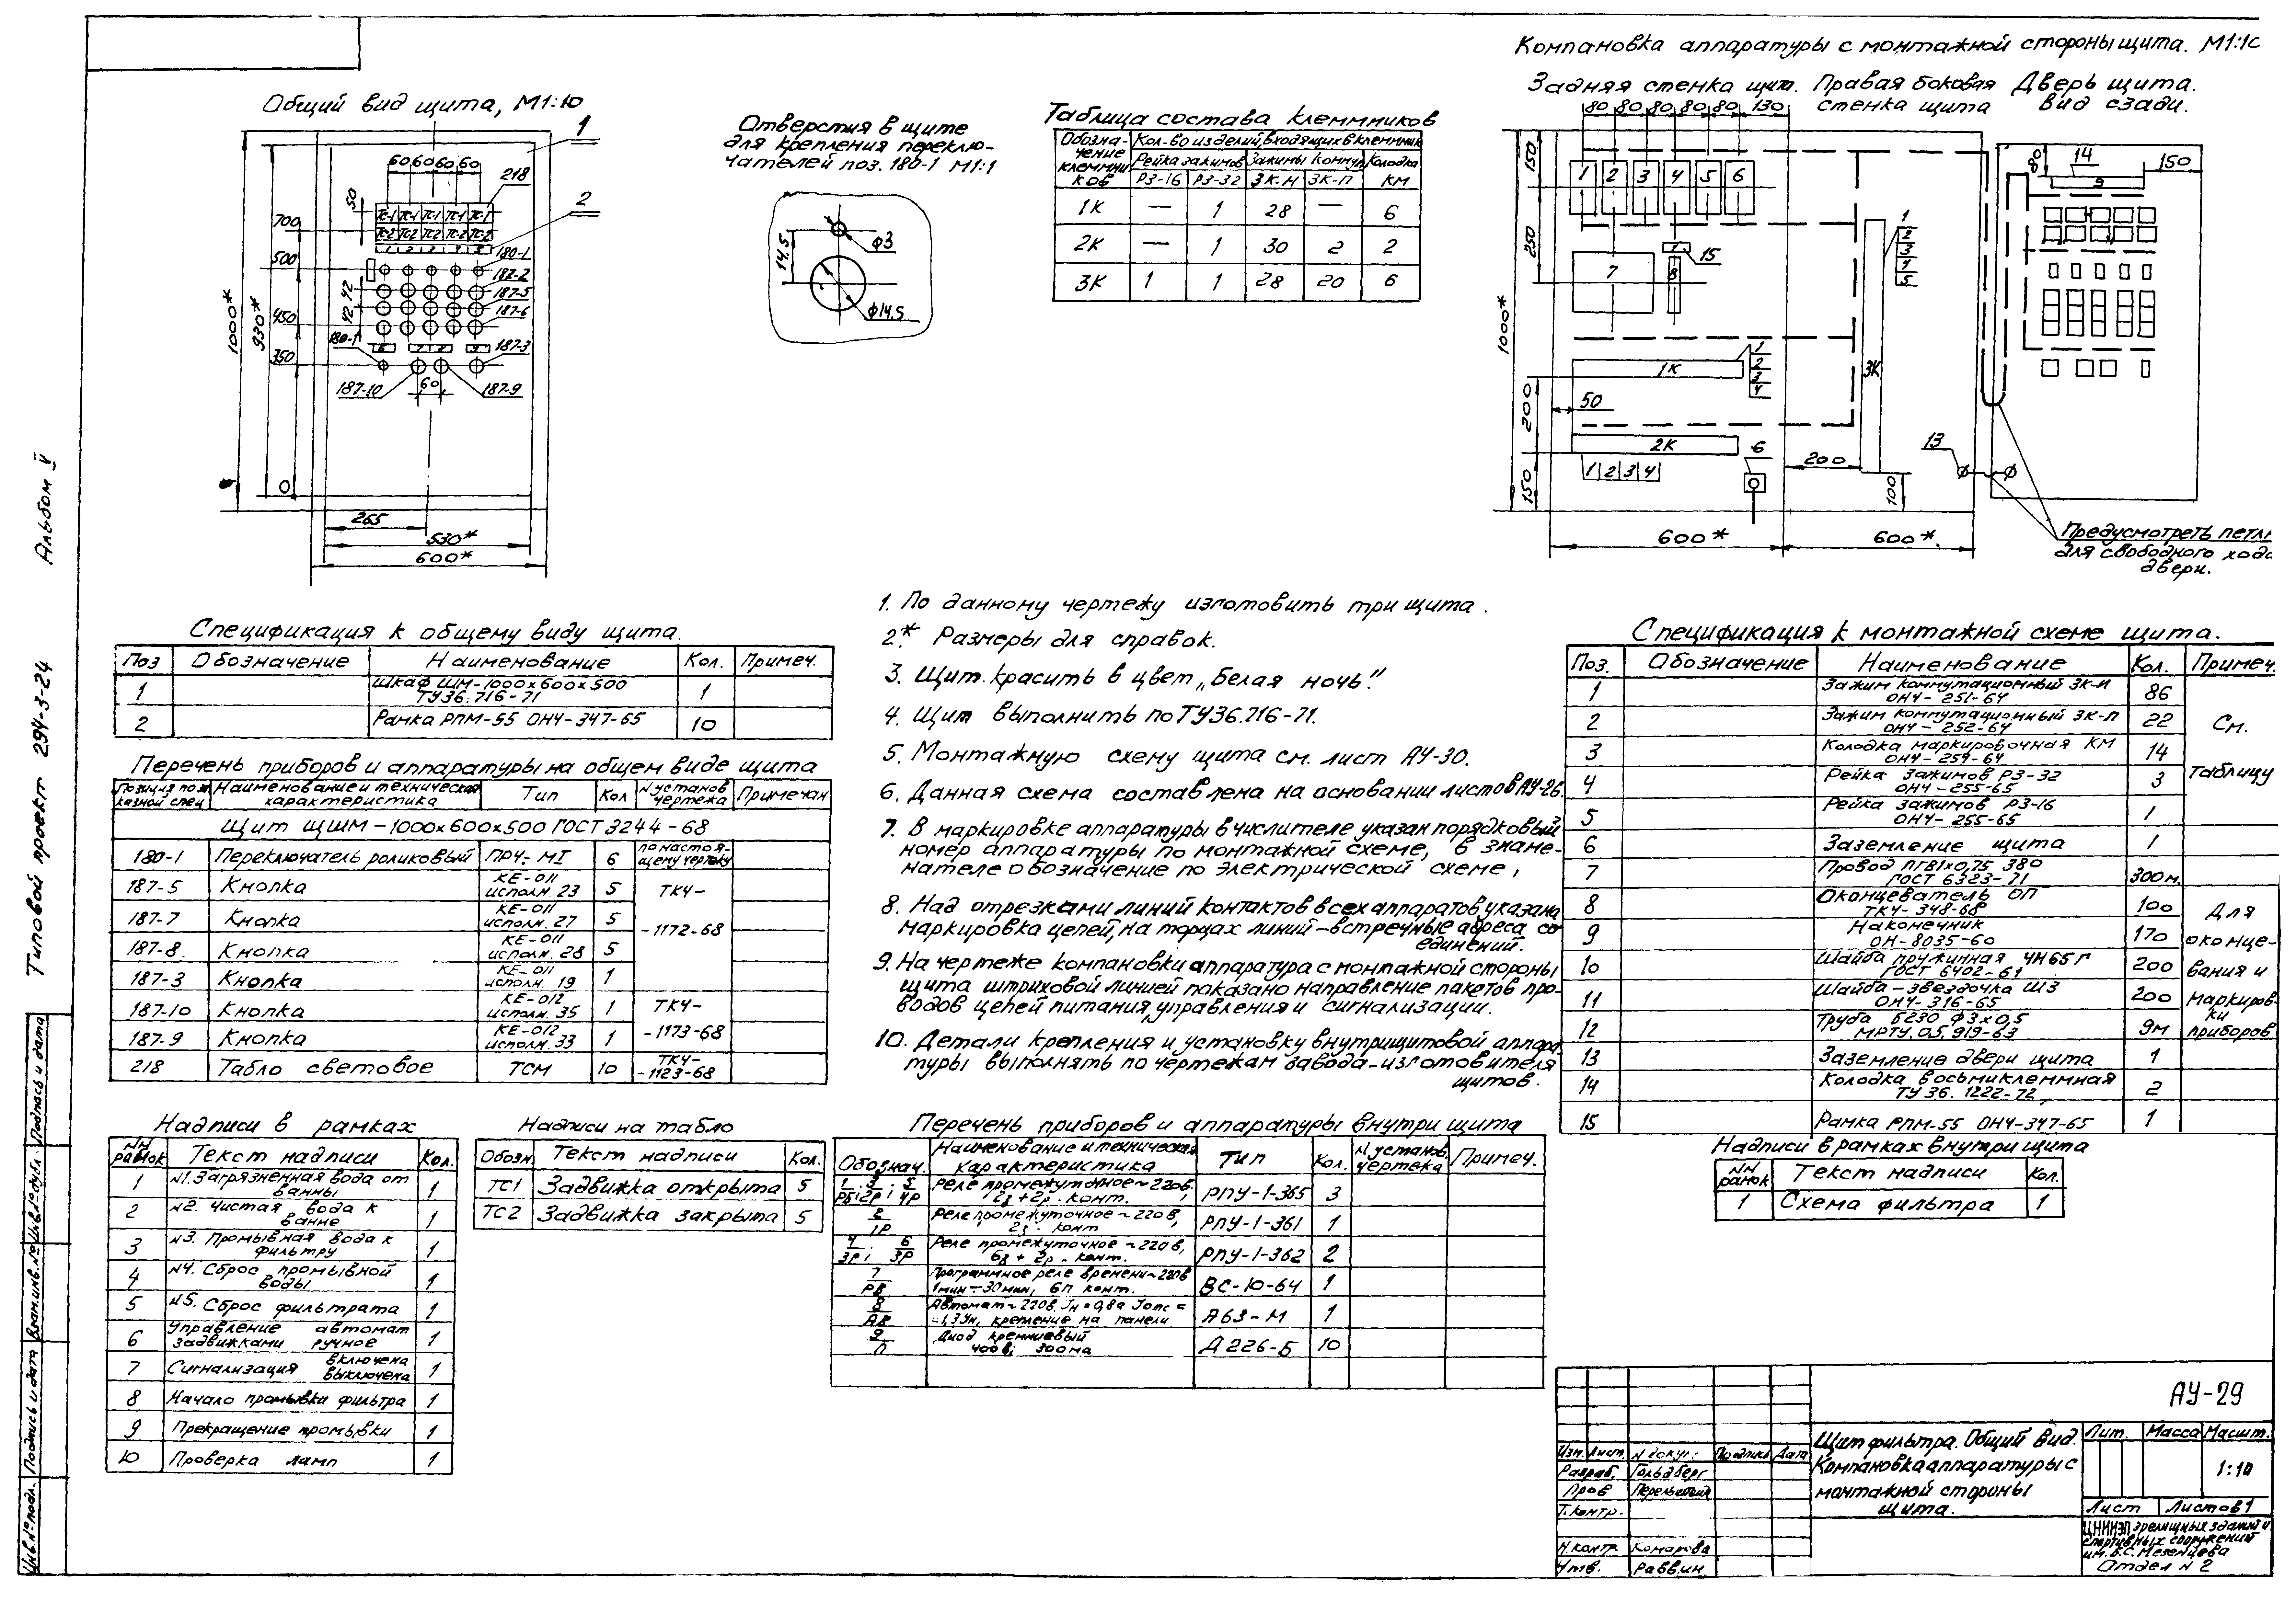 Компановка аппаратуры с монтажной стороны щита. М1:1
Задняя стенка щит. Правая боковая стенка щита Дверь щита. Вид сзади.
Общий вид щита, М1:10
1
60 60 60 60
218
2
50
ТС-1 ТС-1 ТС-1 ТС-1 ТС-1
ТС-2 ТС-2 ТС-2 ТС-2 ТС-2
1 2 3 4 5
700
500
450
350
0
1000*
930*
42 42
42
180-1
187-2
187-5
187-6
180-1
6 7 8 9
187-3
187-10
60
187-9
265
530*
600*
Отверстия в щите
для крепления переклю-
чателей поз. 180-1 М1:1
14.5
ф3
ф14.5
Таблица состава клеммников
Обозна-
чение
клеммни-
ков
Кол-во изделий, входящих в клеммник
Рейка зажимов Зажимы коммут. Колодка
РЗ-16 РЗ-32 ЗК-Н ЗК-П КМ
1К — 1 28 — 6
2К — 1 30 2 2
3К 1 1 28 20 6
80 80 80 80 80 130
150
250
1000*
200
150
1 2 3 4 5 6
7
1
15
8
1К
1
2
3
4
50
2К
1 2 3 4
6
200
3К
1
2
3
4
5
100
13
600*
600*
80
14
150
9
Предусмотреть
для свободного
двери.
1. По данному чертежу изготовить три щита.
2* Размеры для справок.
3. Щит красить в цвет „Белая ночь."
4. Щит выполнить по ТУ36.716-71.
5. Монтажную схему щита см. лист АУ-30.
6. Данная схема составлена на основании листов АУ-26.
7. В маркировке аппаратуры в числителе указан порядковый
номер аппаратуры по монтажной схеме, в знаме-
нателе обозначение по электрической схеме;
8. Над отрезками линий контактов всех аппаратов указана
маркировка цепей, на торцах линий-встречные адреса со-
единений.
9. На чертеже компановки аппаратура с монтажной стороны
щита штриховой линией показано направление пакетов про-
водов цепей питания, управления и сигнализации.
10. Детали крепления и установку внутрищитовой аппара-
туры выполнять по чертежам завода-изготовителя
щитов.
Спецификация к общему виду щита.
Поз Обозначение Наименование Кол. Примеч.
1 Шкаф ШМ-1000х600х500
ТУ36.716-71 1
2 Рамка РПМ-55 ОН4-347-65 10
Перечень приборов и аппаратуры на общем виде щита
Позиция по заказной спец Наименование и техническая характеристика Тип Кол N установ чертежа Примечан
Щит ЩШМ-1000х600х500 ГОСТ 3244-68
180-1 Переключатель роликовый ПРЧ-МI 6 по насто-
ящему чертежу
187-5 Кнопка КЕ-011 исполн. 23 5 ТК4-
187-7 Кнопка КЕ-011 исполн. 27 5 -1172-68
187-8. Кнопка КЕ-011 исполн. 28 5
187-3 Кнопка КЕ-011 исполн. 19 1
187-10 Кнопка КЕ-012 исполн. 35 1 ТК4-
187-9 Кнопка КЕ-012 исполн. 33 1 -1173-68
218 Табло световое ТСМ 10 ТК4-
-1123-68
Надписи в рамках
NN рамок Текст надписи Кол.
1 N1. Загрязненная вода от ванны 1
2 N2. Чистая вода к ванне 1
3 N3. Промывная вода к фильтру 1
4 N4. Сброс промывной воды 1
5 N5. Сброс фильтрата 1
6 Управление автомат
задвижками ручное 1
7 Сигнализация включена
выключена 1
8 Начало промывки фильтра 1
9 Прекращение промывки 1
10 Проверка ламп 1
Надписи на табло
Обозн. Текст надписи Кол.
ТС1 Задвижка открыта 5
ТС2 Задвижка закрыта 5
Перечень приборов и аппаратуры внутри щита
Обознач. Наименование и техническая характеристика Тип Кол. N установ. чертежа Примеч.
1/Р5; 3/2Р; 5/4Р Реле промежуточное ~220в,
2з+2р. конт. РПУ-1-365 3
2/1Р Реле промежуточное ~220в,
2з - конт РПУ-1-361 1
4/3Р; 6/3Р Реле промежуточное ~220в,
6з+2р - конт. РПУ-1-362 2
7/РВ Программное реле времени ~220в
1мин-30мин, 6п конт. ВС-10-64 1
8/АВ Автомат ~220в. Jн=0,8а Jотс=
=1,3Jн, крепление на панели А63-М 1
9/П Диод кремниевый
400в; 300ма Д226-Б 10
Спецификация к монтажной схеме щита.
Поз. Обозначение Наименование Кол. Примеч.
1 Зажим коммутационный ЗК-Н
ОН4-251-64 86
2 Зажим коммутационный ЗК-П
ОН4-252-64 22 См.
3 Колодка маркировочная КМ
ОН4-254-64 14
4 Рейка зажимов РЗ-32
ОН4-255-65 3 таблицу
5 Рейка зажимов РЗ-16
ОН4-255-65 1
6 Заземление щита 1
7 Провод ПГВ1х0,75 380
ГОСТ 6323-71 300м.
8 Оконцеватель ОП
ТК4-348-68 100 Для
9 Наконечник
ОН-8035-60 170 оконце-
10 Шайба пружинная 4Н65Г
ГОСТ 6402-61 200 вания и
11 Шайба-звездочка Ш3
ОН4-316-65 200 маркиров-
ки
12 Труба Б230 ф3х0,5
МРТУ.05.919-63 9м приборов
13 Заземление двери щита 1
14 Колодка восьмиклеммная
ТУ 36.1222-72 2
15 Рамка РПМ-55 ОН4-347-65 1
Надписи в рамках внутри щита
NN рамок Текст надписи Кол.
1 Схема фильтра 1
АУ-29
Изм. Лист. N докум. Подпись Дата
Разраб. Гольдберг
Пров
Т.контр.
Н.контр. Комарова
Утв. Раввин
Щит фильтра. Общий вид.
Компановка аппаратуры с
монтажной стороны
щита.
Лит. Масса Масшт.
1:10
Лист Листов 1
ЦНИИЭП зрелищных зданий и
спортивных сооружений
им. Б.С. Мезенцева
Отдел N 2
Альбом V
Типовой проект 294-3-24
Инв.N°подл. Подпись и дата Взам.инв.N° Инв.N°дубл. Подпись и дата